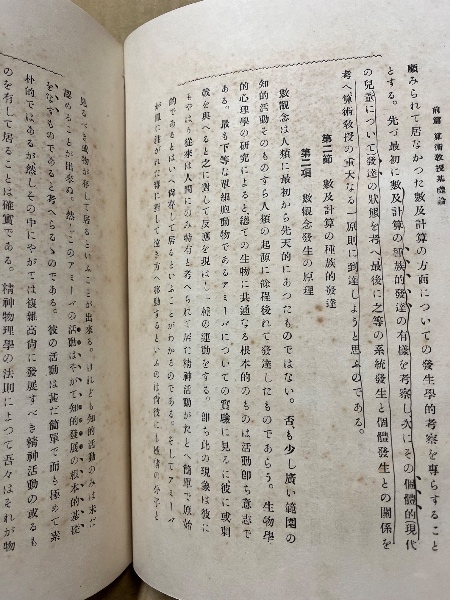 前篇 算術敎授基礎論
顧みられて居なかつた數及計算の方面についての發生學的考察を專らすること
とする。先づ最初に數及計算の種族的發達の有樣を考察し次にその個體的(現代
の兒童について)發達の狀態を考へ最後に之等の系統發生と個體發生との關係を
考へ算術敎授の重大なる一原則に到達しようと思ふのである。
第二節 數及計算の種族的發達
第一項 數觀念發生の原理
數觀念は人類に最初から先天的にあつたものではない。否、も少し廣い範圍の
知的活動そのものすら人類の起源に餘程後れて發達したものであらう。生物學
的心理學の硏究によると總ての生物に共通なる根本的のものは活動卽ち意志で
ある。最も下等な單細胞動物であるアミーバについての實驗に見るに彼に或刺
戟を與へると之に對して反應を現はし一般の運動をする。卽ち此の現象は彼に
もやはり從來は人間にのみ特有と考へられて居た精神活動がたとへ簡單で原始
的であるとはいへ保存して居るといふことがわかるのである。そしてアミーバ
見るべき或物が存して居るといふことが出來る。けれども知的活動のみは未だ
認めることが出來ぬ。然しこのアミーバの活動はやがて知的發展の根本的基礎
をなすものであると考へらるゝのである。彼の活動は甚だ簡單で而も極めて素
朴的ではあるが然しその中にやがては複雜高尙に發展すべき精神活動の或るも
のを有して居ることは確實である。精神物理學の法則によつて吾々はそれが物